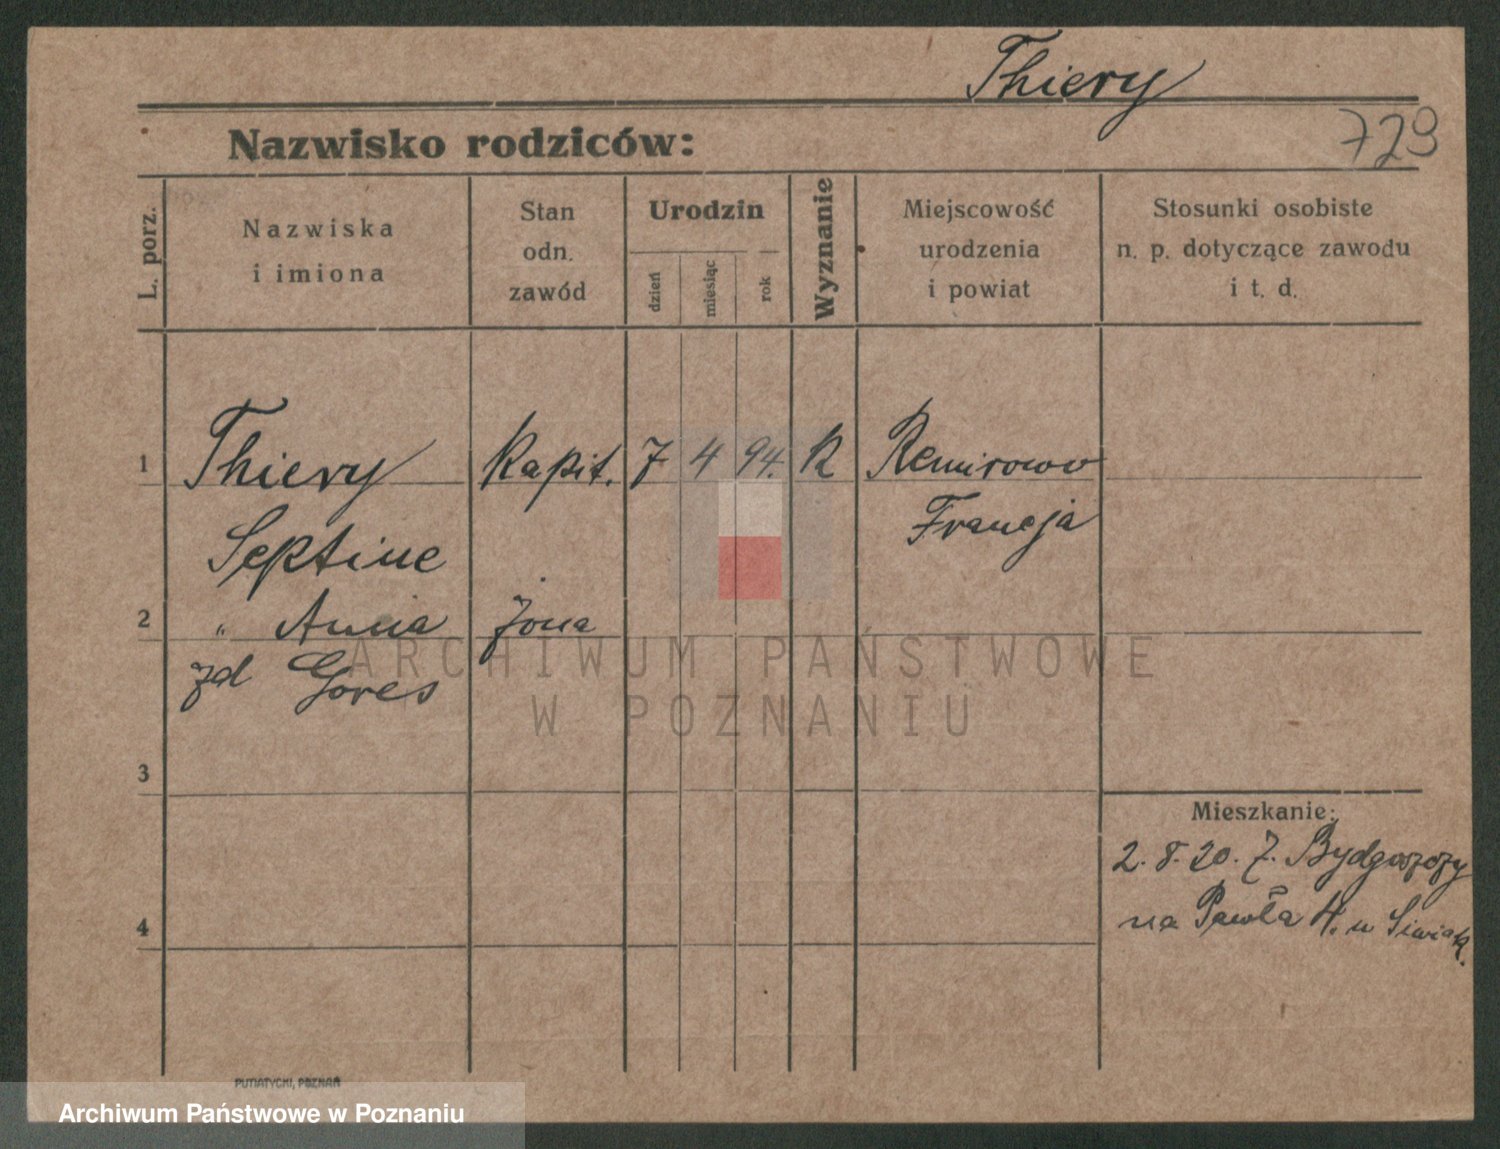 Thiery
729
Nazwisko rodziców:
L. porz.
Nazwiska
i imiona
Stan
odn.
zawód
Urodzin
dzień
miesiąc
rok
Wyznanie
Miejscowość
urodzenia
i powiat
Stosunki osobiste
n. p. dotyczące zawodu
i t. d.
1
Thiery Kapit. 7 4 94. K Remirowo
Septime
Francja
2
" Anna żona
zd Gores
ARCHIWUM PAŃSTWOWE
W POZNANIU
3
Mieszkanie:
2. 8. 20. Z. Bydgoszczy
na Pawła 4. u Siwiak.
4
PUTIATYCKI, POZNAŃ
Archiwum Państwowe w Poznaniu